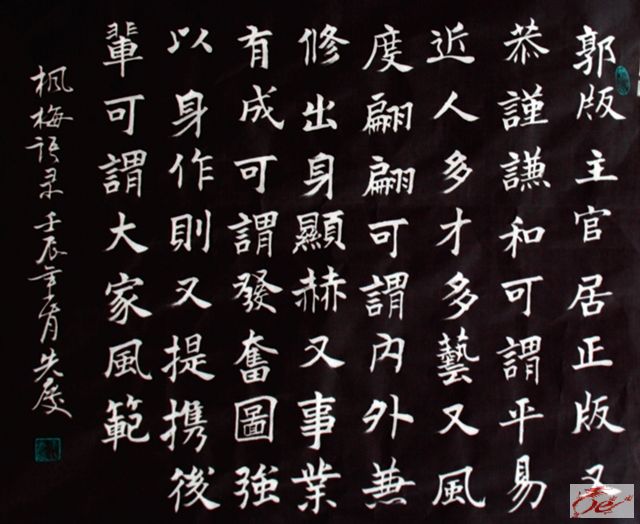 郭版主官居正版又
恭謹謙和可謂平易
近人多才多藝又風
度翩翩可謂内外兼
修出身顯赫又事業
有成可謂發奮圖強
以身作則又提携後
輩可謂大家風範
楓梅语录 壬辰年